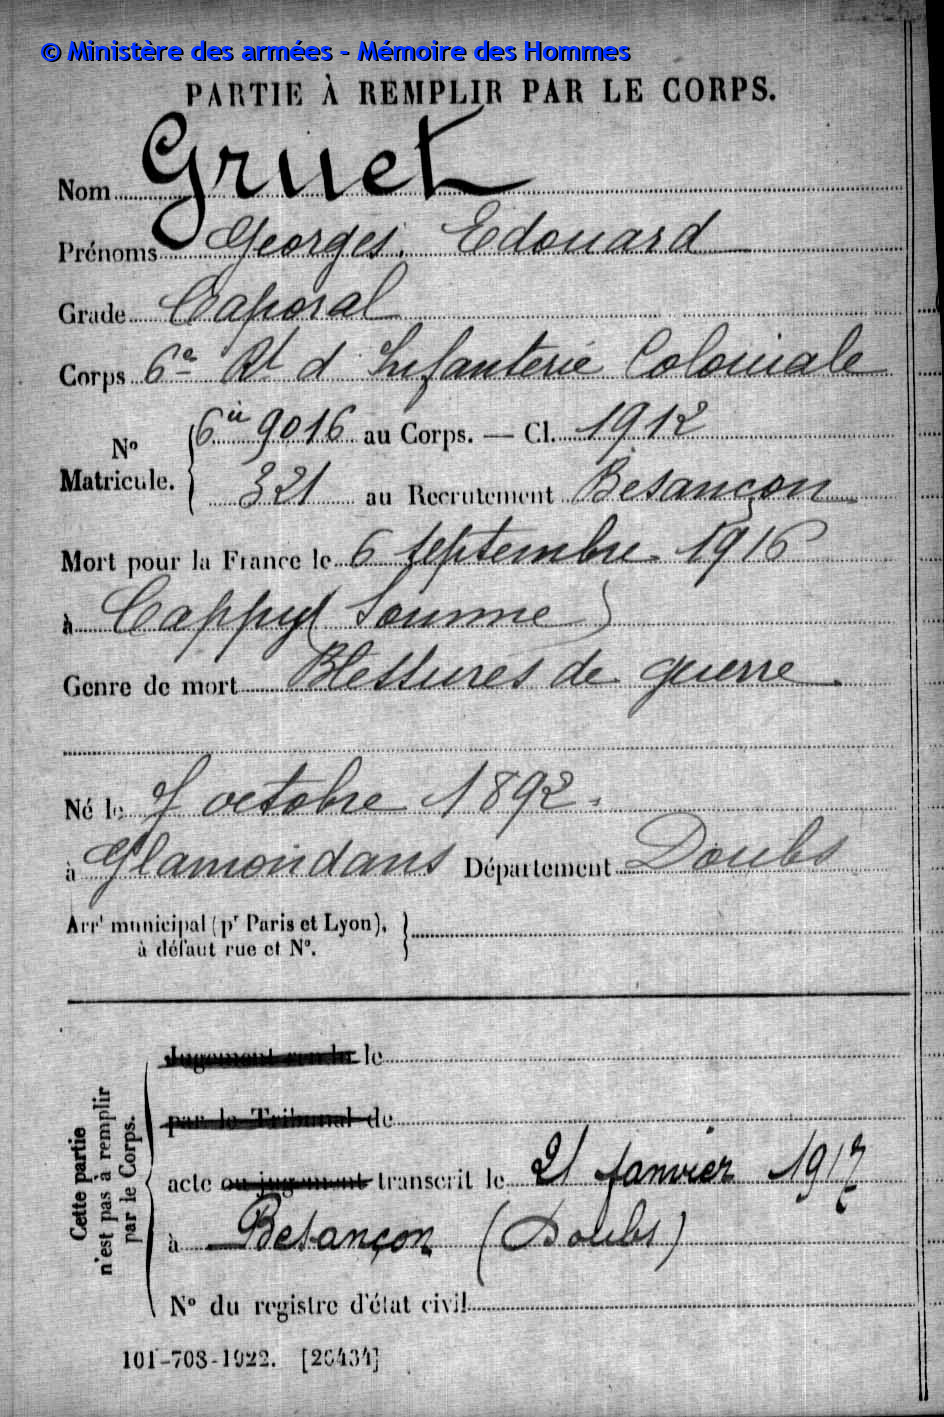 © Ministère des armées - Mémoire des Hommes
PARTIE À REMPLIR PAR LE CORPS.
Nom Gruet
Prénoms Georges, Edouard
Grade Caporal
Corps 6e Rt d'Infanterie Coloniale
No Matricule. 6 9016 au Corps. — Cl. 1912
321 au Recrutement Besançon
Mort pour la France le 6 septembre 1916
à Cappy (Somme)
Genre de mort Blessures de guerre
Né le 7 octobre 1892.
à Glamondans Département Doubs
Arrt municipal (pr Paris et Lyon),
à défaut rue et No.
Cette partie
n'est pas à remplir
par le Corps.
Jugement rendu le
par le Tribunal de
acte ou jugement transcrit le 21 janvier 1917
à Besançon (Doubs)
No du registre d'état civil
101-708-1922. [26434]